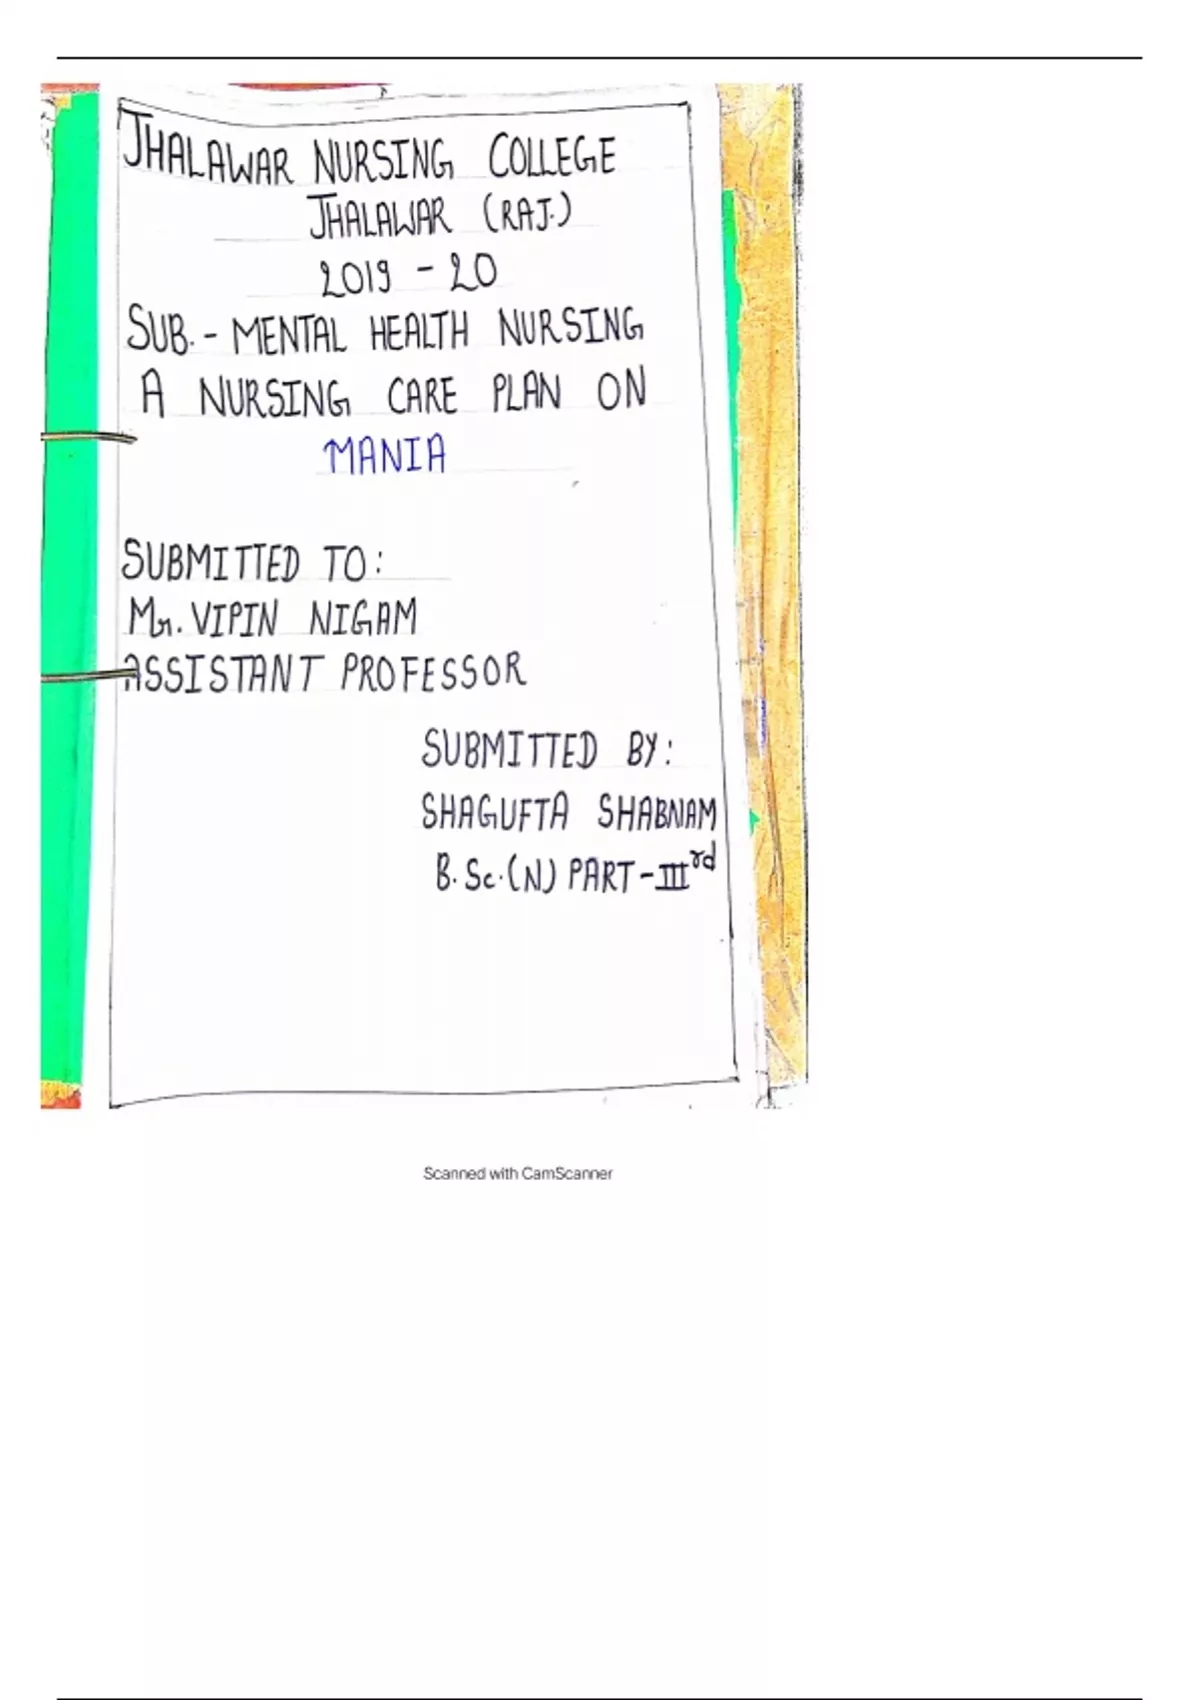 JHALAWAR NURSING COLLEGE
JHALAWAR (RAJ.)
2019 - 20
SUB. - MENTAL HEALTH NURSING
A NURSING CARE PLAN ON
MANIA
SUBMITTED TO:
Mr. VIPIN NIGAM
ASSISTANT PROFESSOR
SUBMITTED BY:
SHAGUFTA SHABNAM
B. Sc. (N) PART - IIIrd
Scanned with CamScanner